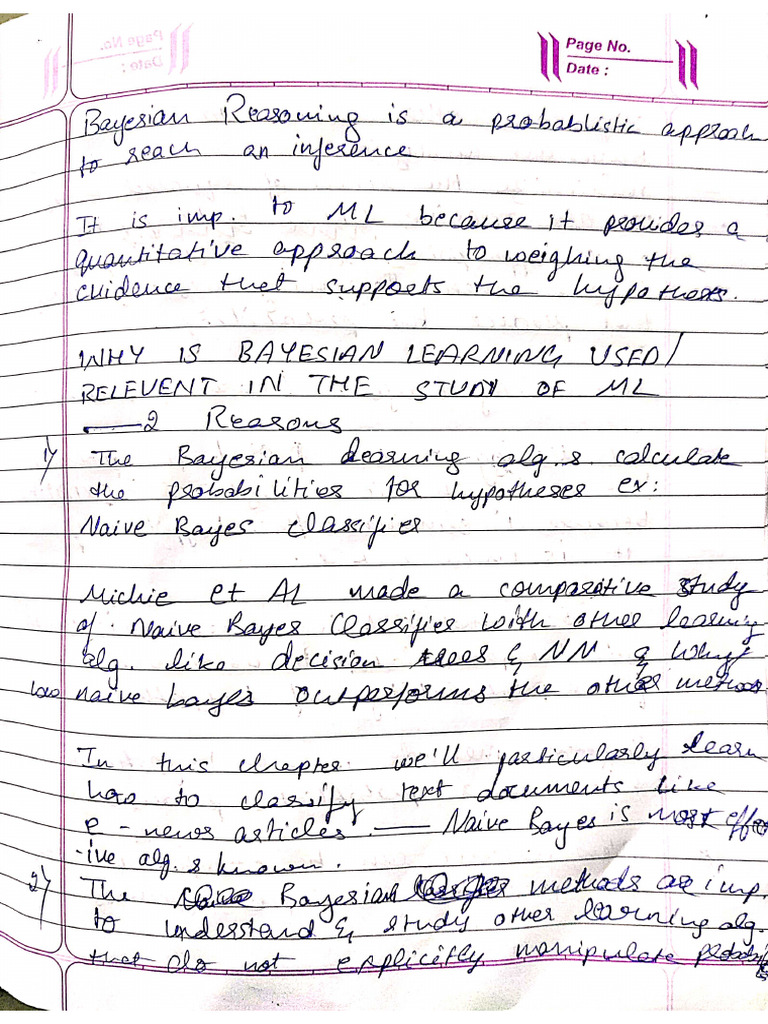 Page No.
Date :
Bayesian Reasoning is a probablistic approach
to reach an inference
It is imp. to ML because it provides a
quantitative approach to weighing the
evidence that supports the hypothesis.
WHY IS BAYESIAN LEARNING USED/
RELEVENT IN THE STUDY OF ML
—2 Reasons
1) The Bayesian learning alg.s calculate
the probabilities for hypotheses ex:
Naive Bayes Classifier
Michie et AL made a comparative study
of Naive Bayes Classifier with other learning
alg. like decision trees & NN & why/
how naive bayes outperforms the other methods
In this chapter we'll particularly learn
how to classify text documents like
e-news articles. — Naive Bayes is most effect
-ive alg.s known.
2) The Bayesian methods are imp.
to understand & study other learning alg.
that do not explicitly manipulate